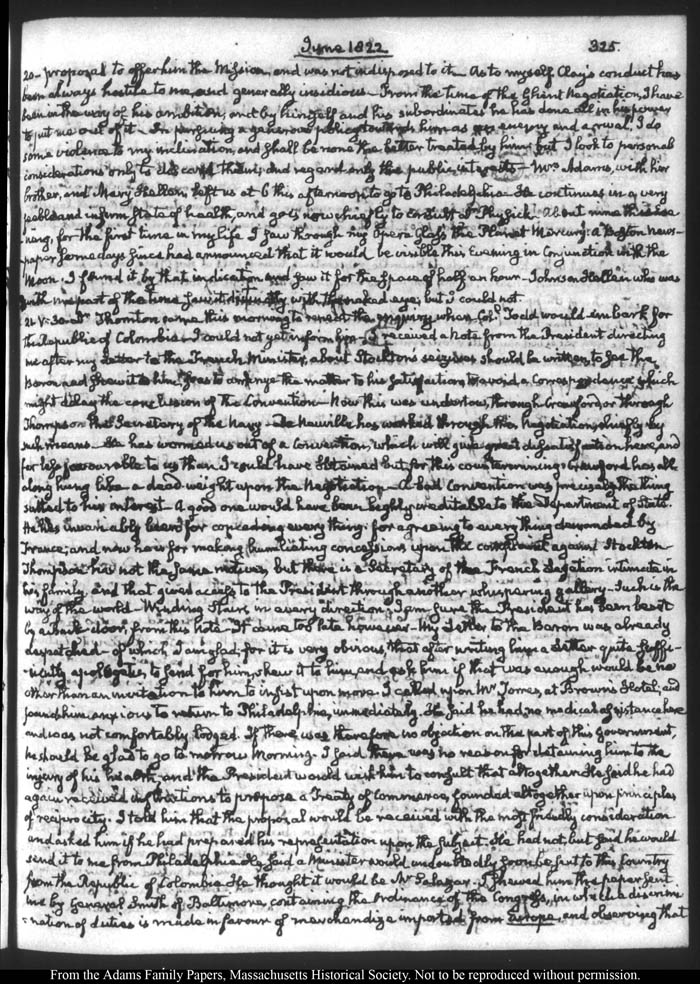 June 1822 325.
20 - proposal to offer him the Mission, and was not indisposed to it - As to myself Clay's conduct has
been always hostile to me, and generally insidious - From the time of the Ghent Negotiation, I have
been in the way of his ambition, and by himself and his subordinates he has done all in his power
to put me out of it - In pursuing a generous policy towards him as an enemy and a rival, I do
some violence to my inclination, and shall be none the better treated by him; but I look to personal
considerations only to discard them; and regard only the public interests - Mrs Adams, with her
brother, and Mary Hellen, left us at 6 this afternoon, to go to Philadelphia - He continues in a very
feeble and infirm state of health, and goes now chiefly to consult Dr Physick. About nine this eve
-ning, for the first time in my life I saw through my Opera Glass the Planet Mercury. a Boston news-
paper some days since had announced that it would be visible this Evening in Conjunction with the
Moon. I found it by that indication and saw it for the space of half an hour - Johnson Hellen who was
with me part of the time saw it distinctly with the naked eye, but I could not.
21. V: Dr Thornton came this morning to renew the enquiry when Col. Todd would embark for
the Republic of Colombia - I could not yet inform him - I received a Note from the President directing
me after my Letter to the French Minister, about Stockton's seizures should be written, to see the
Baron and shew it to him, so as to arrange the matter to his satisfaction, to avoid a Correspondence, which
might delay the conclusion of the Convention - Now this was undertow, through Crawford, or through
Thompson the Secretary of the Navy - De Neuville has worked through this Negotiation, chiefly by
such means - He has wormed us out of a Convention, which will give great dissatisfaction here, and
far less favourable to us than I could have obtained but for this countermining. Crawford has all
along hung like a dead weight upon the Negotiation - A bad Convention was precisely the thing
suited to his interest - A good one would have been highly creditable to the Department of State.
He has invariably been for conceding every thing: for agreeing to every thing demanded by
France; and now he is for making humiliating concessions upon the complaint against Stockton -
Thompson has not the same motives, but there is a Secretary of the French Legation intimate in
his family, and that gives access to the President through another whispering gallery - Such is the
way of the world - Winding Stairs, in every direction. I am sure the President has been beset
by a back door, from this note - It came too late however - My Letter to the Baron was already
despatched - of which, I am glad; for it is very obvious that after writing him a Letter quite suffi-
-ciently apologetic, to send for him, shew it to him, and ask him if that was enough would be no
other than an invitation to him to insist upon more. I called upon Mr Torres, at Brown's Hotel, and
found him anxious to return to Philadelphia, immediately. He said he had no medical assistance here
and was not comfortably lodged. If there was therefore no objection on the part of this Government,
he should be glad to go tomorrow Morning. I said there was no reason for detaining him to the
injury of his health, and the President would wish him to consult that altogether. He said he had
again received instructions to propose a Treaty of Commerce, founded altogether upon principles
of reciprocity. I told him that the proposal would be received with the most friendly consideration
and asked him if he had prepared his representation upon the subject. He had not; but said he would
send it to me from Philadelphia. He said a Minister would undoubtedly soon be sent to this Country
from the Republic of Colombia - He thought it would be Mr Salazar. I shewed him the paper sent
me by General Smith of Baltimore, containing the Ordinance of the Congress, in which a discrimi
-nation of duties is made in favour of merchandize imported from Europe, and observing that
From the Adams Family Papers, Massachusetts Historical Society. Not to be reproduced without permission.